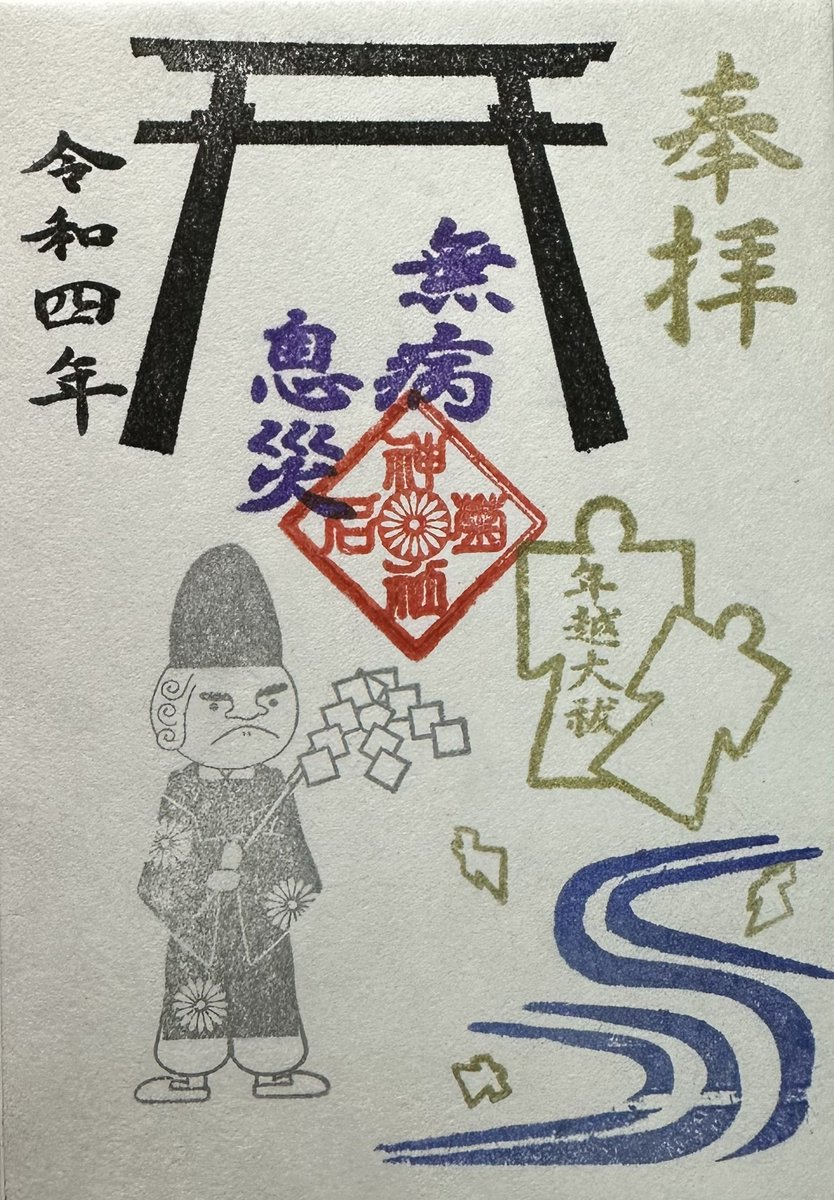 奉拝
無病
息災
菊名神社
年越大祓
令和四年